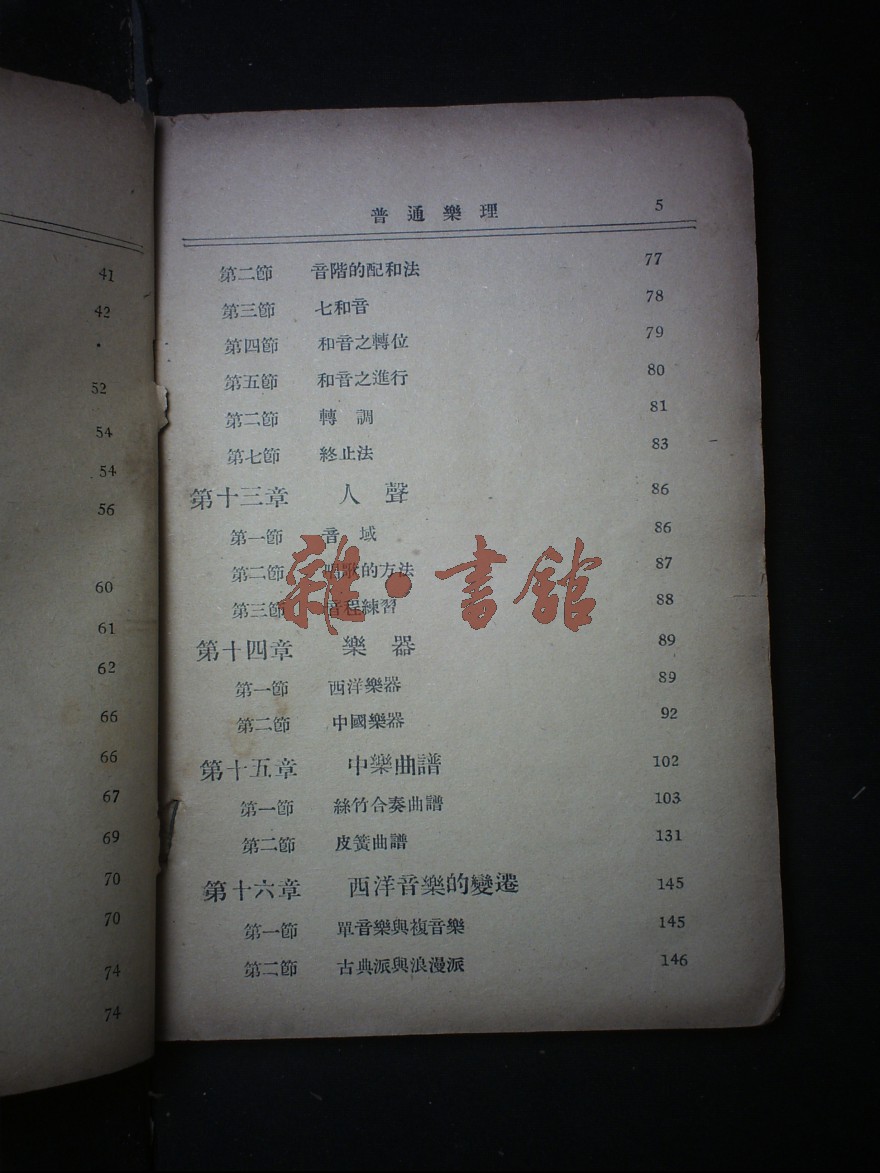 41
42
52
54
54
56
60
61
62
66
66
67
69
70
70
74
74
普通樂理 5
第二節 音階的配和法 77
第三節 七和音 78
第四節 和音之轉位 79
第五節 和音之進行 80
第二節 轉調 81
第七節 終止法 83
第十三章 人聲 86
第一節 音域 86
第二節 唱歌的方法 87
第三節 音程練習 88
雜·書館
第十四章 樂器 89
第一節 西洋樂器 89
第二節 中國樂器 92
第十五章 中樂曲譜 102
第一節 絲竹合奏曲譜 103
第二節 皮簧曲譜 131
第十六章 西洋音樂的變遷 145
第一節 單音樂與複音樂 145
第二節 古典派與浪漫派 146